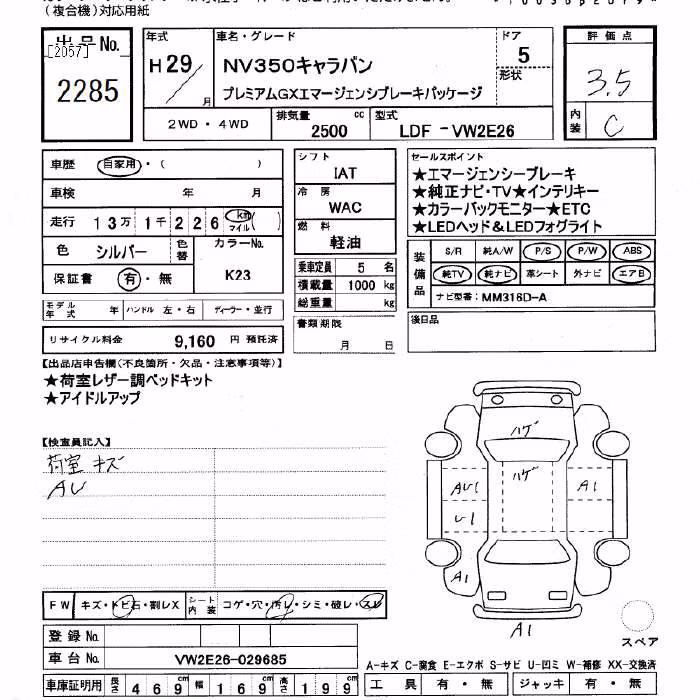 (複合機)対応用紙
出品No.
[2057]
2285
年式
H29/
月
車名・グレード
NV350キャラバン
プレミアムGXエマージェンシブレーキパッケージ
ドア
5
形状
評価点
3.5
内装
C
2WD・4WD
排気量
2500
cc
型式
LDF-VW2E26
車歴
自家用・( )
車検
年 月
走行
13万1千226
km
マイル
( )
色
シルバー
色替
カラーNo.
K23
保証書
有・無
モデル年式
年
ハンドル
左・右
ディーラー・並行
リサイクル料金
9,160 円 預託済
シフト
IAT
冷房
WAC
燃料
軽油
乗車定員 5 名
積載量 1000 kg
総重量 kg
書類期限
月 日
セールスポイント
★エマージェンシーブレーキ
★純正ナビ・TV★インテリキー
★カラーバックモニター★ETC
★LEDヘッド&LEDフォグライト
装備品
S/R 純A/W P/S P/W ABS
純TV 純ナビ 革シート 外ナビ エアB
ナビ型番: MM316D-A
後日品
【出品店申告欄(不良箇所・欠品・注意事項等)】
★荷室レザー調ベッドキット
★アイドルアップ
【検査員記入】
荷室 キズ
AU
ハゲ
ハゲ
AU1
A1
U1
A1
A1
スペア
FW
キズ・トビ石・割レX
シート内装
コゲ・穴・汚レ・シミ・破レ・スレ
登録No.
車台No.
VW2E26-029685
車庫証明用
長さ 469cm 幅 169cm 高さ 199
A-キズ C-腐食 E-エクボ S-サビ U-凹ミ W-補修 XX-交換済
工具
有・無
ジャッキ
有・無